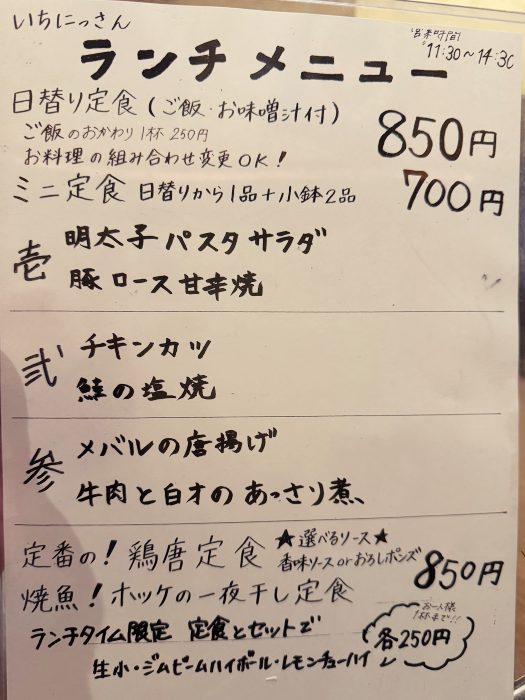 いちにっさん
営業時間
11:30~14:30
ランチメニュー
日替り定食(ご飯・お味噌汁付) 850円
ご飯のおかわり1杯250円
お料理の組み合わせ変更OK!
ミニ定食 日替りから1品+小鉢2品 700円
壱 明太子パスタサラダ
豚ロース甘辛焼
弐 チキンカツ
鮭の塩焼
参 メバルの唐揚げ
牛肉と白才のあっさり煮、
定番の!鶏唐定食 ★選べるソース★
香味ソースorおろしポンズ 850円
焼魚!ホッケの一夜干し定食
ランチタイム限定 定食とセットで
生小・ジムビームハイボール・レモンチューハイ
お一人様
1杯まで!!
各250円